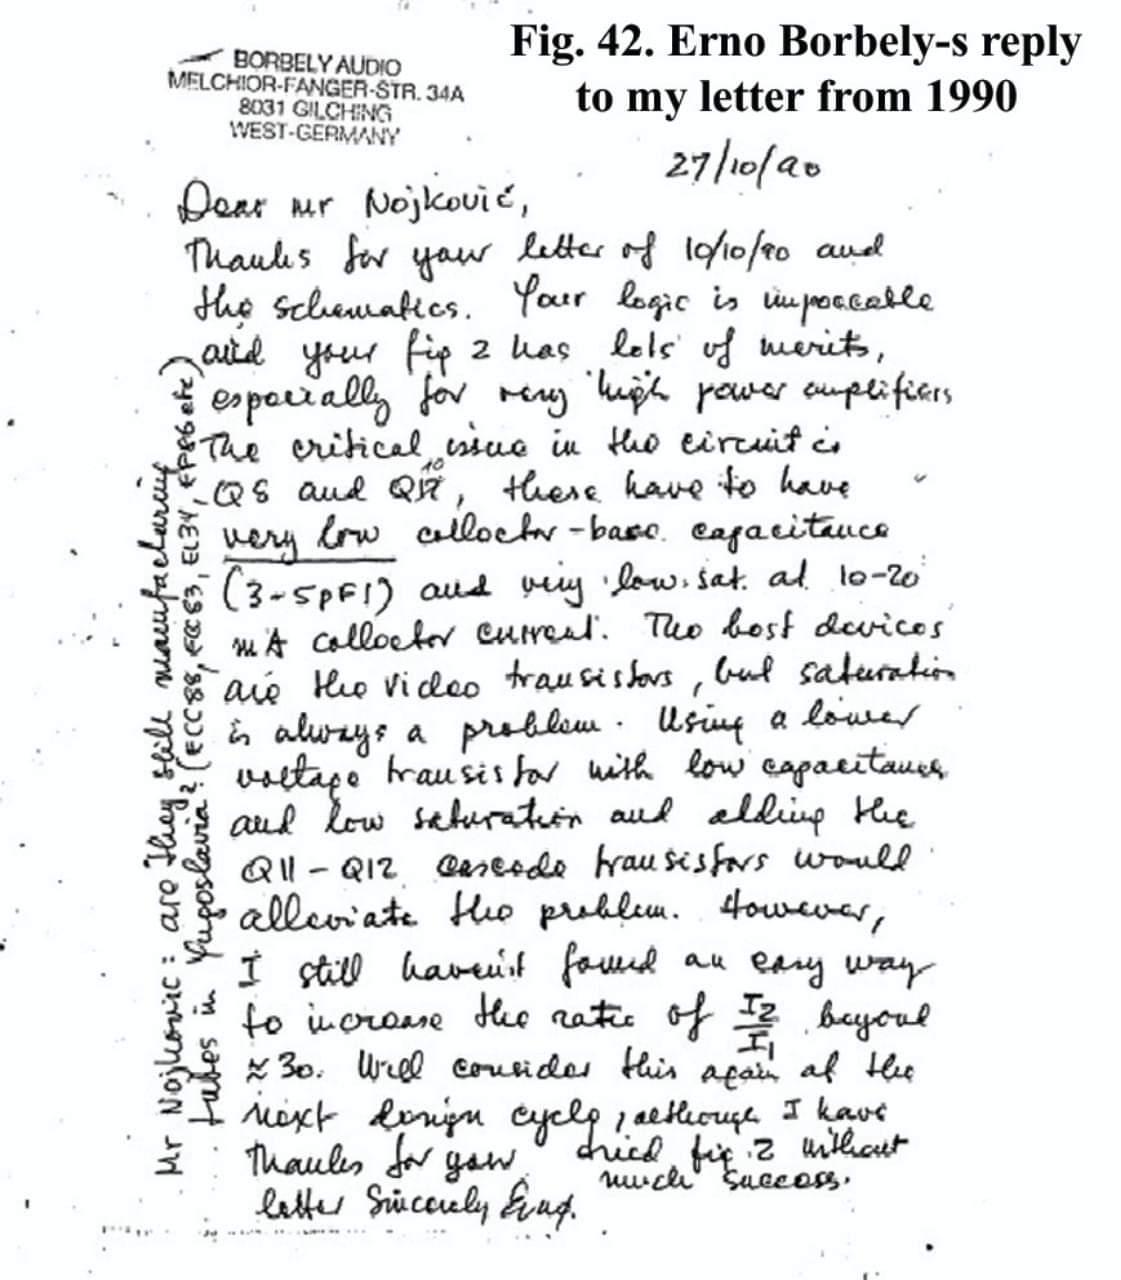 Fig. 42. Erno Borbely-s reply
to my letter from 1990
BORBELY AUDIO
MELCHIOR-FANGER-STR. 34A
8031 GILCHING
WEST-GERMANY
27/10/90
Dear Mr Nojković,
Thanks for your letter of 10/10/90 and
the schematics. Your logic is impeccable
and your fig 2 has lots of merits,
especially for very high power amplifiers
The critical issue in the circuit is
Q8 and Q10, these have to have
very low collector-base capacitance
(3-5pF!) and very low sat. at 10-20
mA collector current. The best devices
are the video transistors, but saturation
is always a problem. Using a lower
voltage transistor with low capacitance
and low saturation and adding the
Q11 - Q12 cascode transistors would
alleviate the problem. However,
I still haven't found an easy way
to increase the ratio of I2/I1 beyond
≈ 30. Will consider this again at the
next design cycle, although I have
tried fig. 2 without
much success.
Thanks for your
letter Sincerely
Mr Nojkovic: are they still manufacturing
tubes in Yugoslavia? (ECC88, ECC83, EL34, EF86 etc)